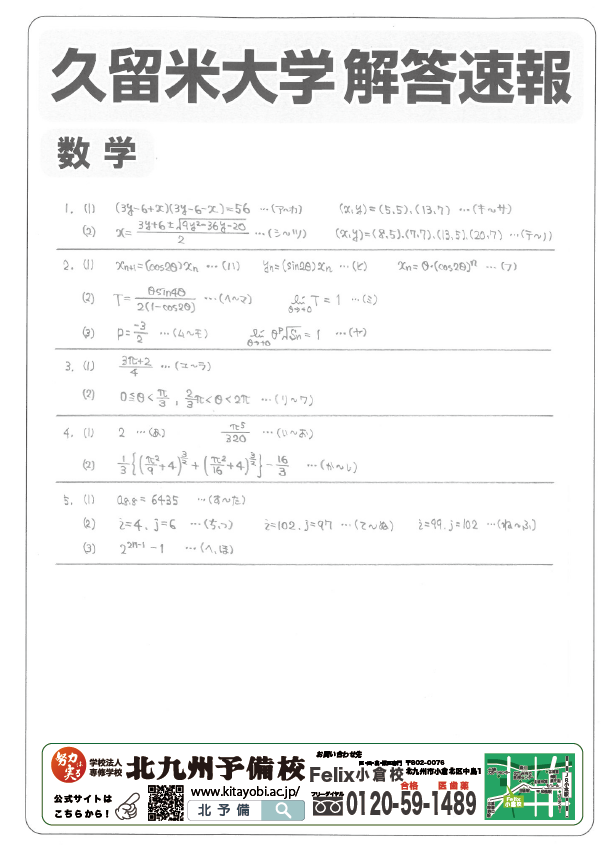 久留米大学 解答速報
数学
1. (1) (3y-6+x)(3y-6-x)=56 …(ア~カ) (x,y)=(5,5),(13,7) …(キ~サ)
(2) x=\frac{3y+6±\sqrt{9y²-36y-20}}{2} …(シ~ツ) (x,y)=(8,5),(7,7),(13,5),(20,7) …(テ~ノ)
2. (1) x_{n+1}=(cos2θ)x_n …(ハ) y_n=(sin2θ)x_n …(ヒ) x_n=θ・(cos2θ)^n …(フ)
(2) T=\frac{θsin4θ}{2(1-cos2θ)} …(ヘ~マ) \lim_{θ→+0} T=1 …(ミ)
(3) P=\frac{-3}{2} …(ム~モ) \lim_{θ→+0} θ^P\sqrt{S_n}=1 …(ヤ)
3. (1) \frac{3π+2}{4} …(ユ~ラ)
(2) 0≦θ<\frac{π}{3}, \frac{2}{3}π<θ<2π …(リ~ワ)
4. (1) 2 …(あ) \frac{π^5}{320} …(い~お)
(2) \frac{1}{3}{(\frac{π²}{9}+4)^{\frac{3}{2}}+(\frac{π²}{16}+4)^{\frac{3}{2}}}-\frac{16}{3} …(か~し)
5. (1) a_{8,8}=6435 …(す~た)
(2) i=4, j=6 …(ち,つ) i=102, j=97 …(て~ぬ) i=99, j=102 …(ね~ふ)
(3) 2^{2n-1}-1 …(へ,ほ)
努力は実る
学校法人
専修学校
北九州予備校
公式サイトは
こちらから！
www.kitayobi.ac.jp/
北予備
お問い合わせ先
Felix小倉校
〒802-0076
北九州市小倉北区中島1
合格 医歯薬
フリーダイヤル
0120-59-1489
Felix
小倉校